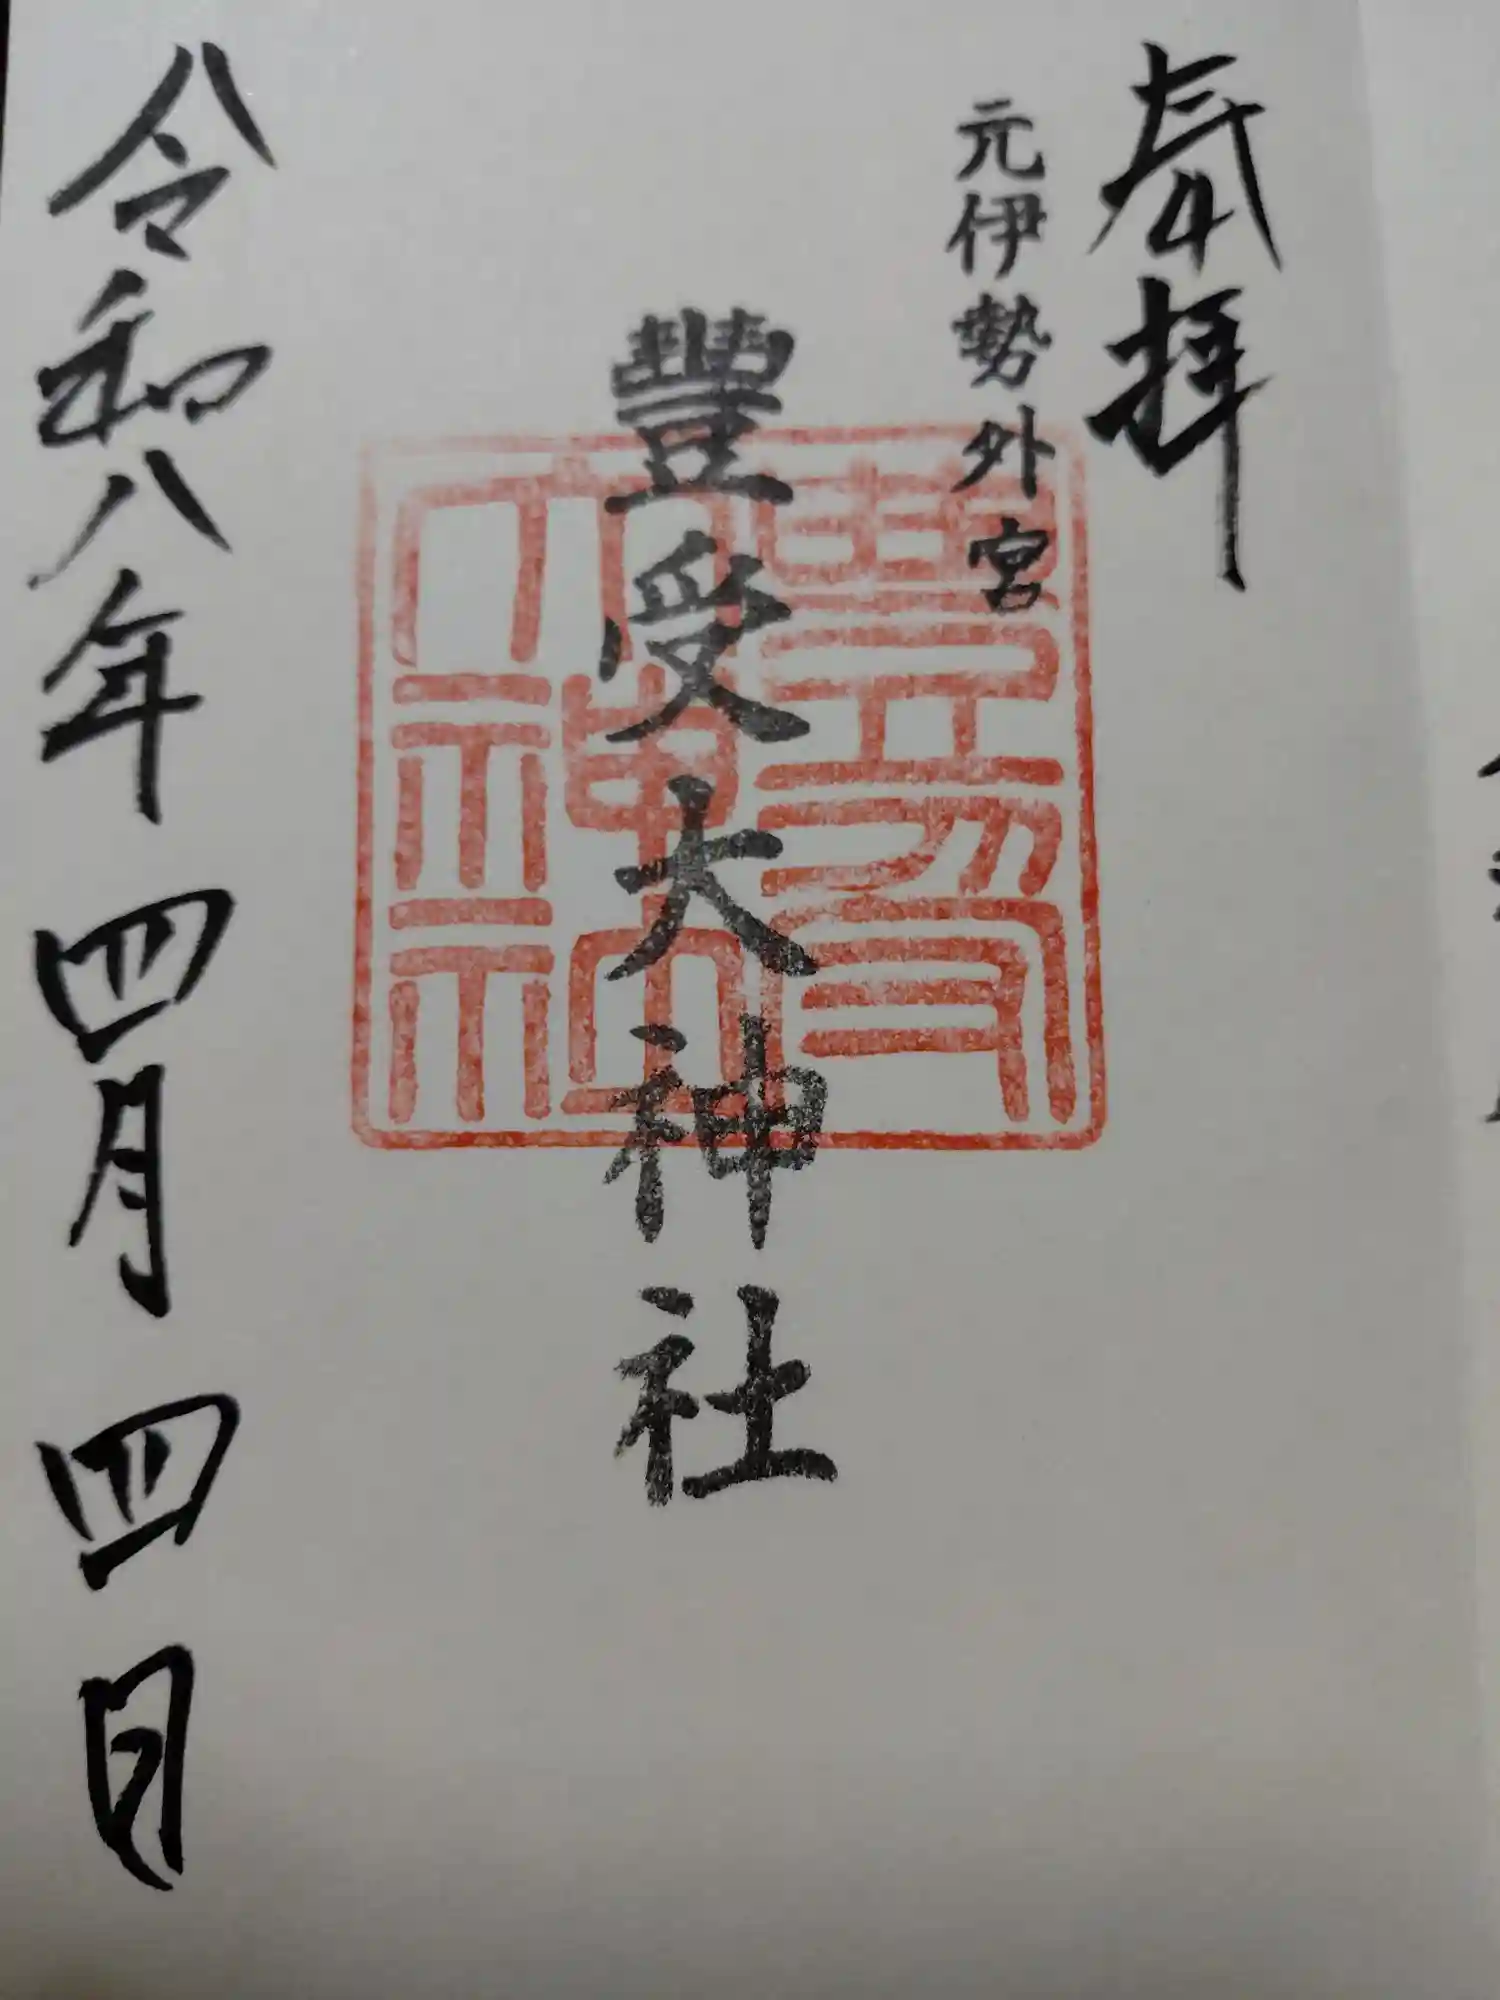 奉拝
元伊勢外宮
豐受大神社
豐受大神社
令和八年四月四日